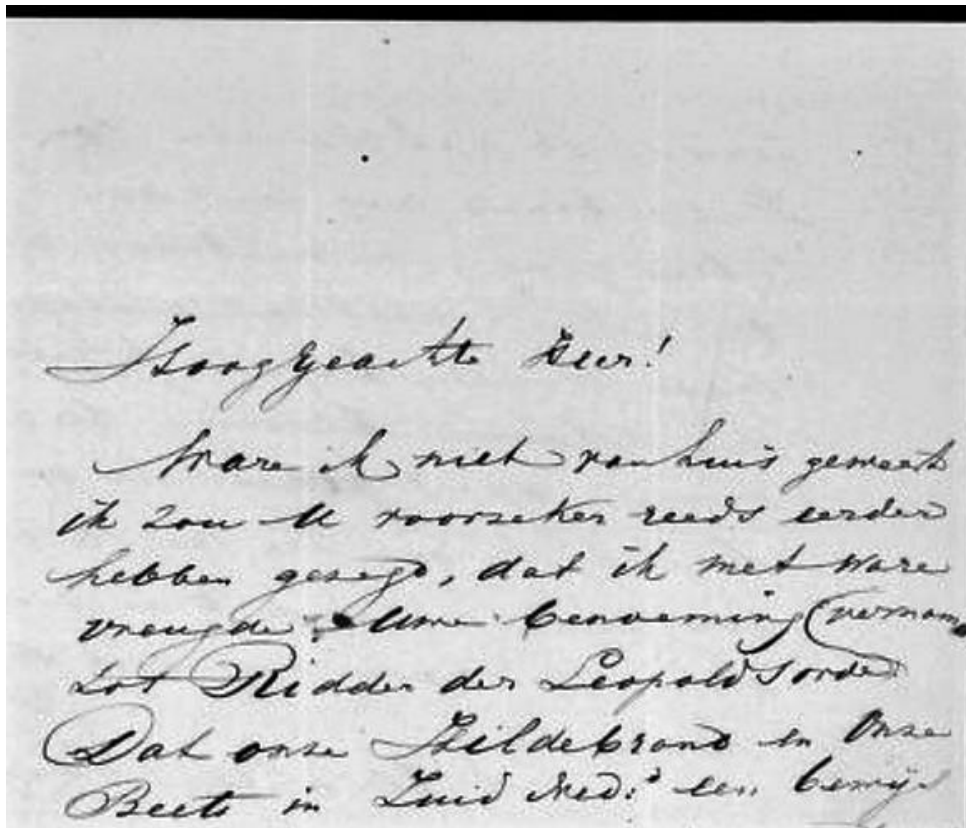 HoogGeachte Heer!
Ware ik niet van huis geweest
ik zou U voorzeker reeds eerder
hebben gezegd, dat ik met ware
vreugde Uwe benoeming vernam
tot Ridder der Leopoldsorde
Dat onze Hildebrand en Onze
Beets in Zuid Ned: een bewijs